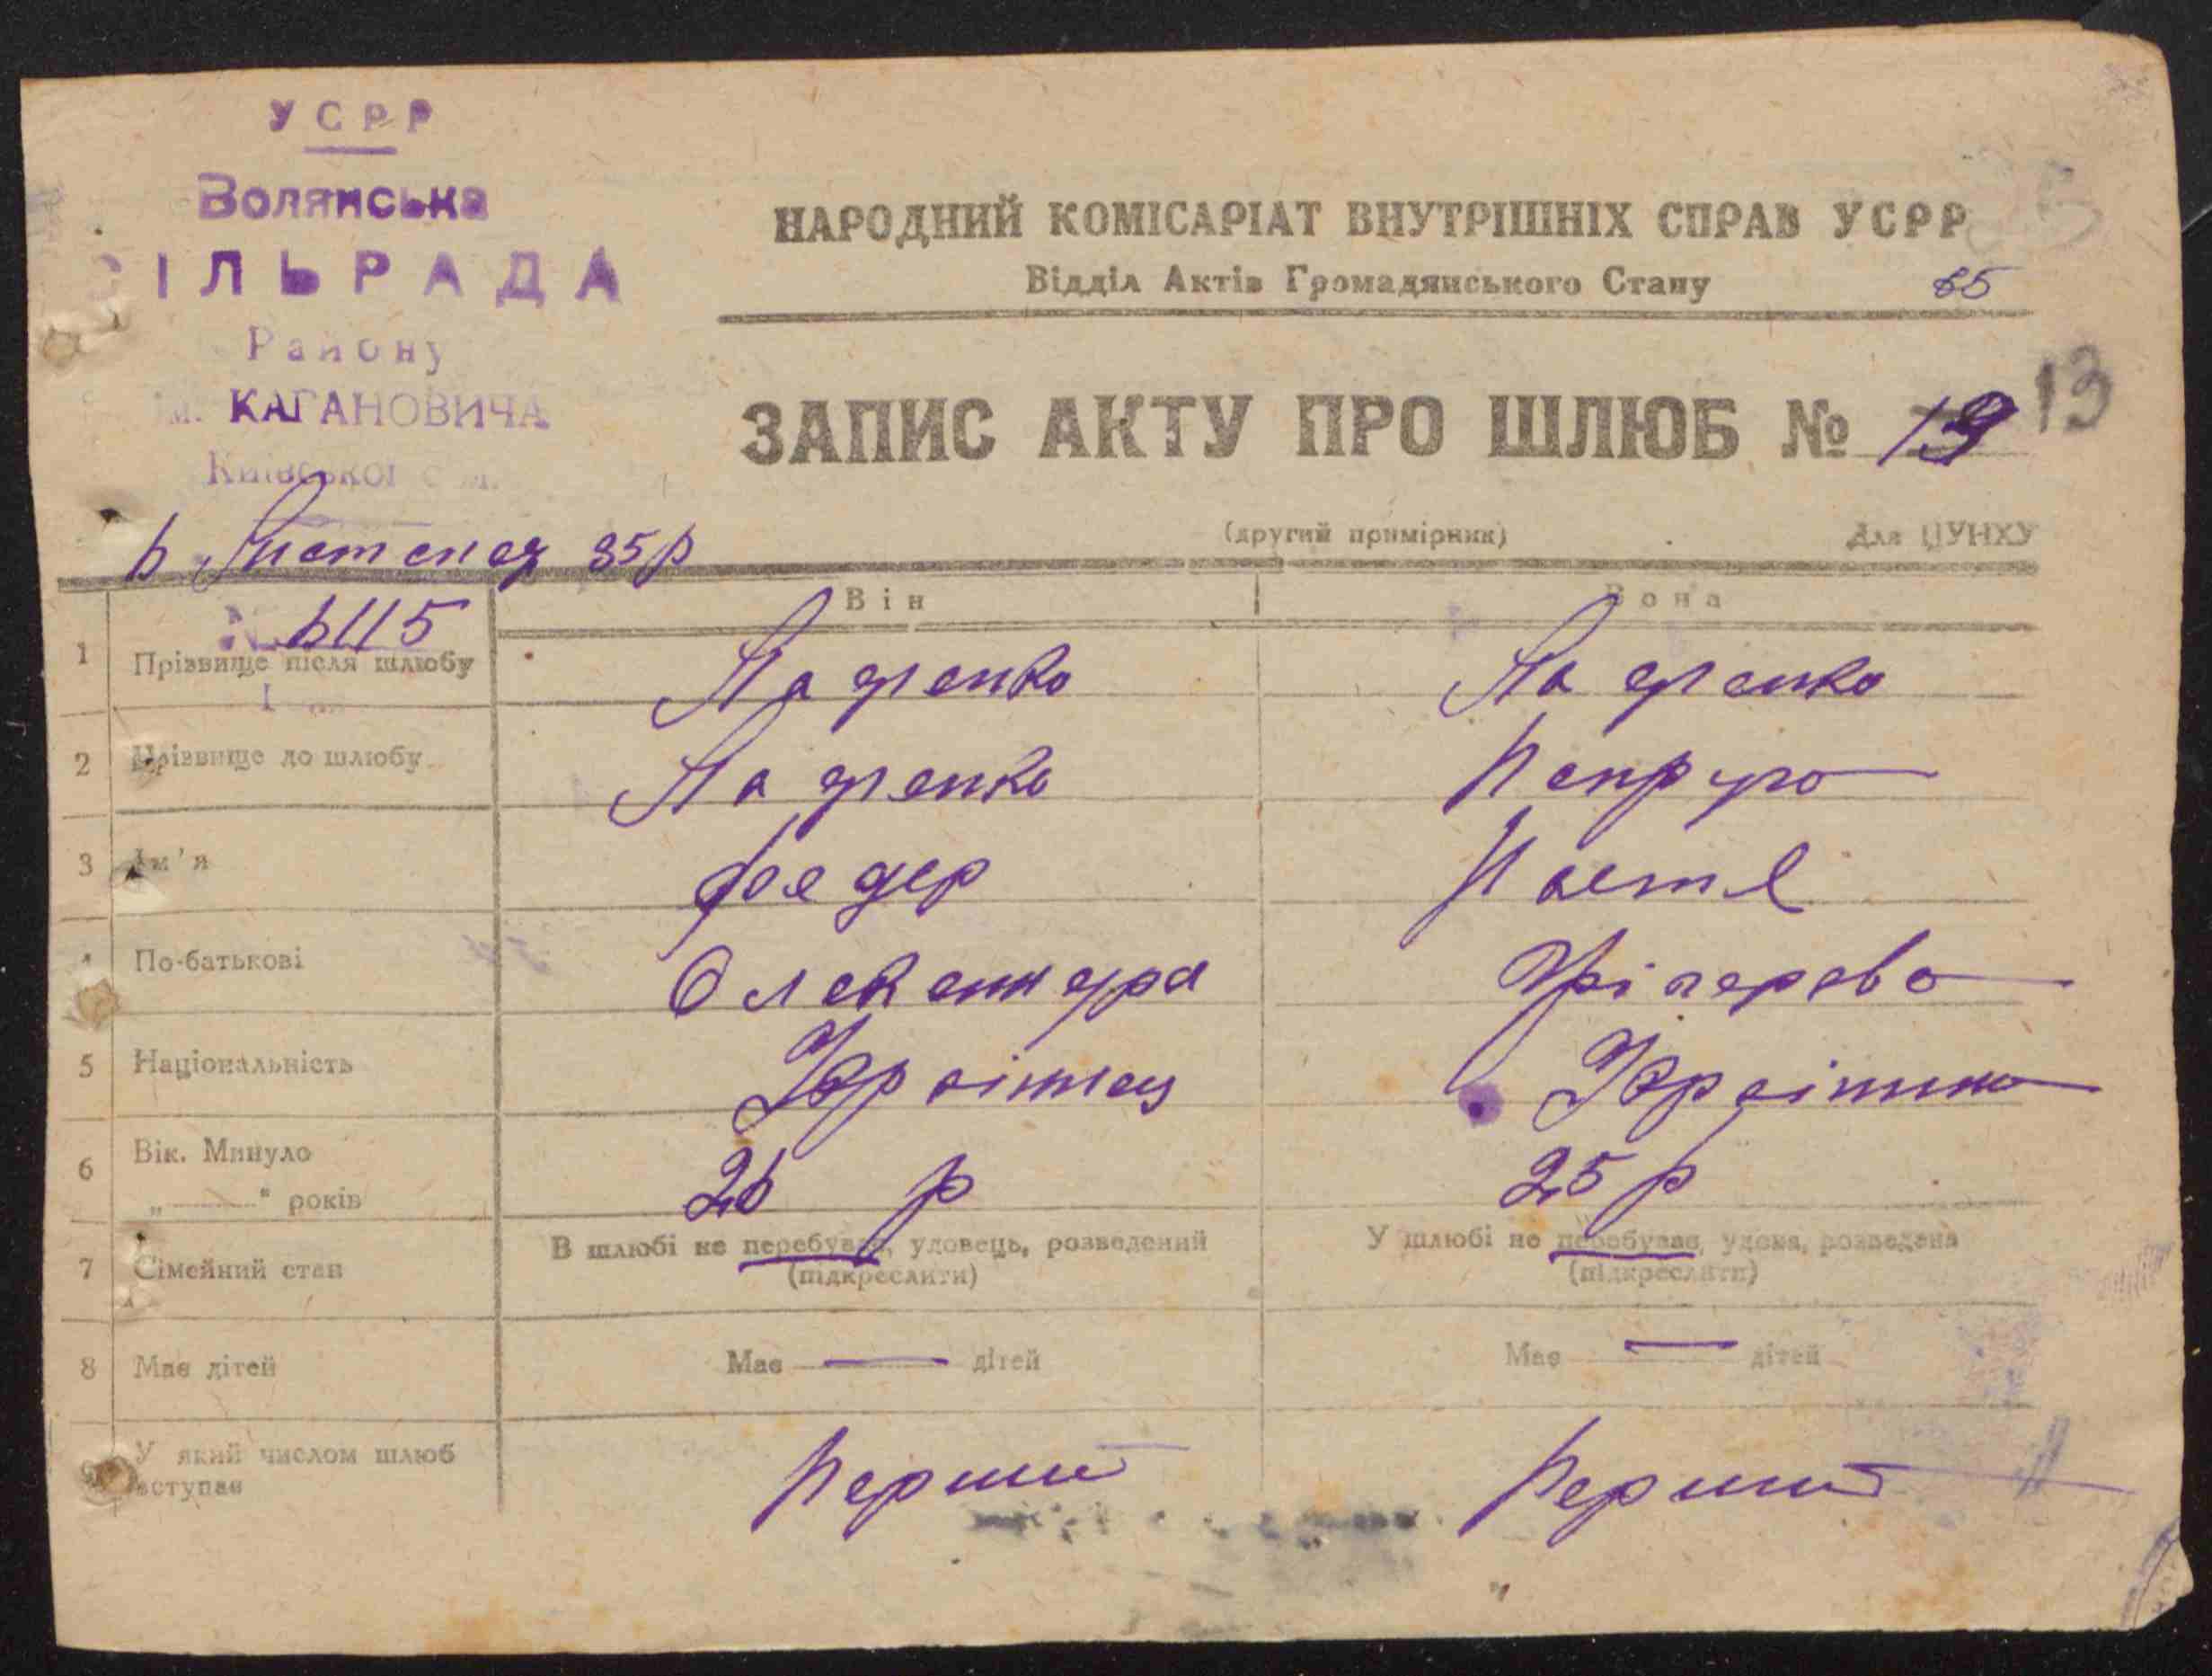 УСРР
Волянська
СІЛЬРАДА
Району
ім. КАГАНОВИЧА
Київської обл.
НАРОДНИЙ КОМІСАРІАТ ВНУТРІШНІХ СПРАВ УСРР
Відділ Актів Громадянського Стану
85
ЗАПИС АКТУ ПРО ШЛЮБ № 19 13
(другий примірник) Для ЦУНХУ
6 Листопад 35 р
Він Вона
№ 6115
1 Прізвище після шлюбу
2 Прізвище до шлюбу
3 Ім'я Фоедер Настя
4 По-батькові Олександра
5 Національність Украінец Украінка
6 Вік. Минуло „ “ років 26 р 25 р
7 Сімейний стан В шлюбі не перебував, удовець, розведений (підкреслити) У шлюбі не перебуває, удова, розведена (підкреслити)
8 Має дітей Має — дітей Має — дітей
9 У який числом шлюб вступає перший перший